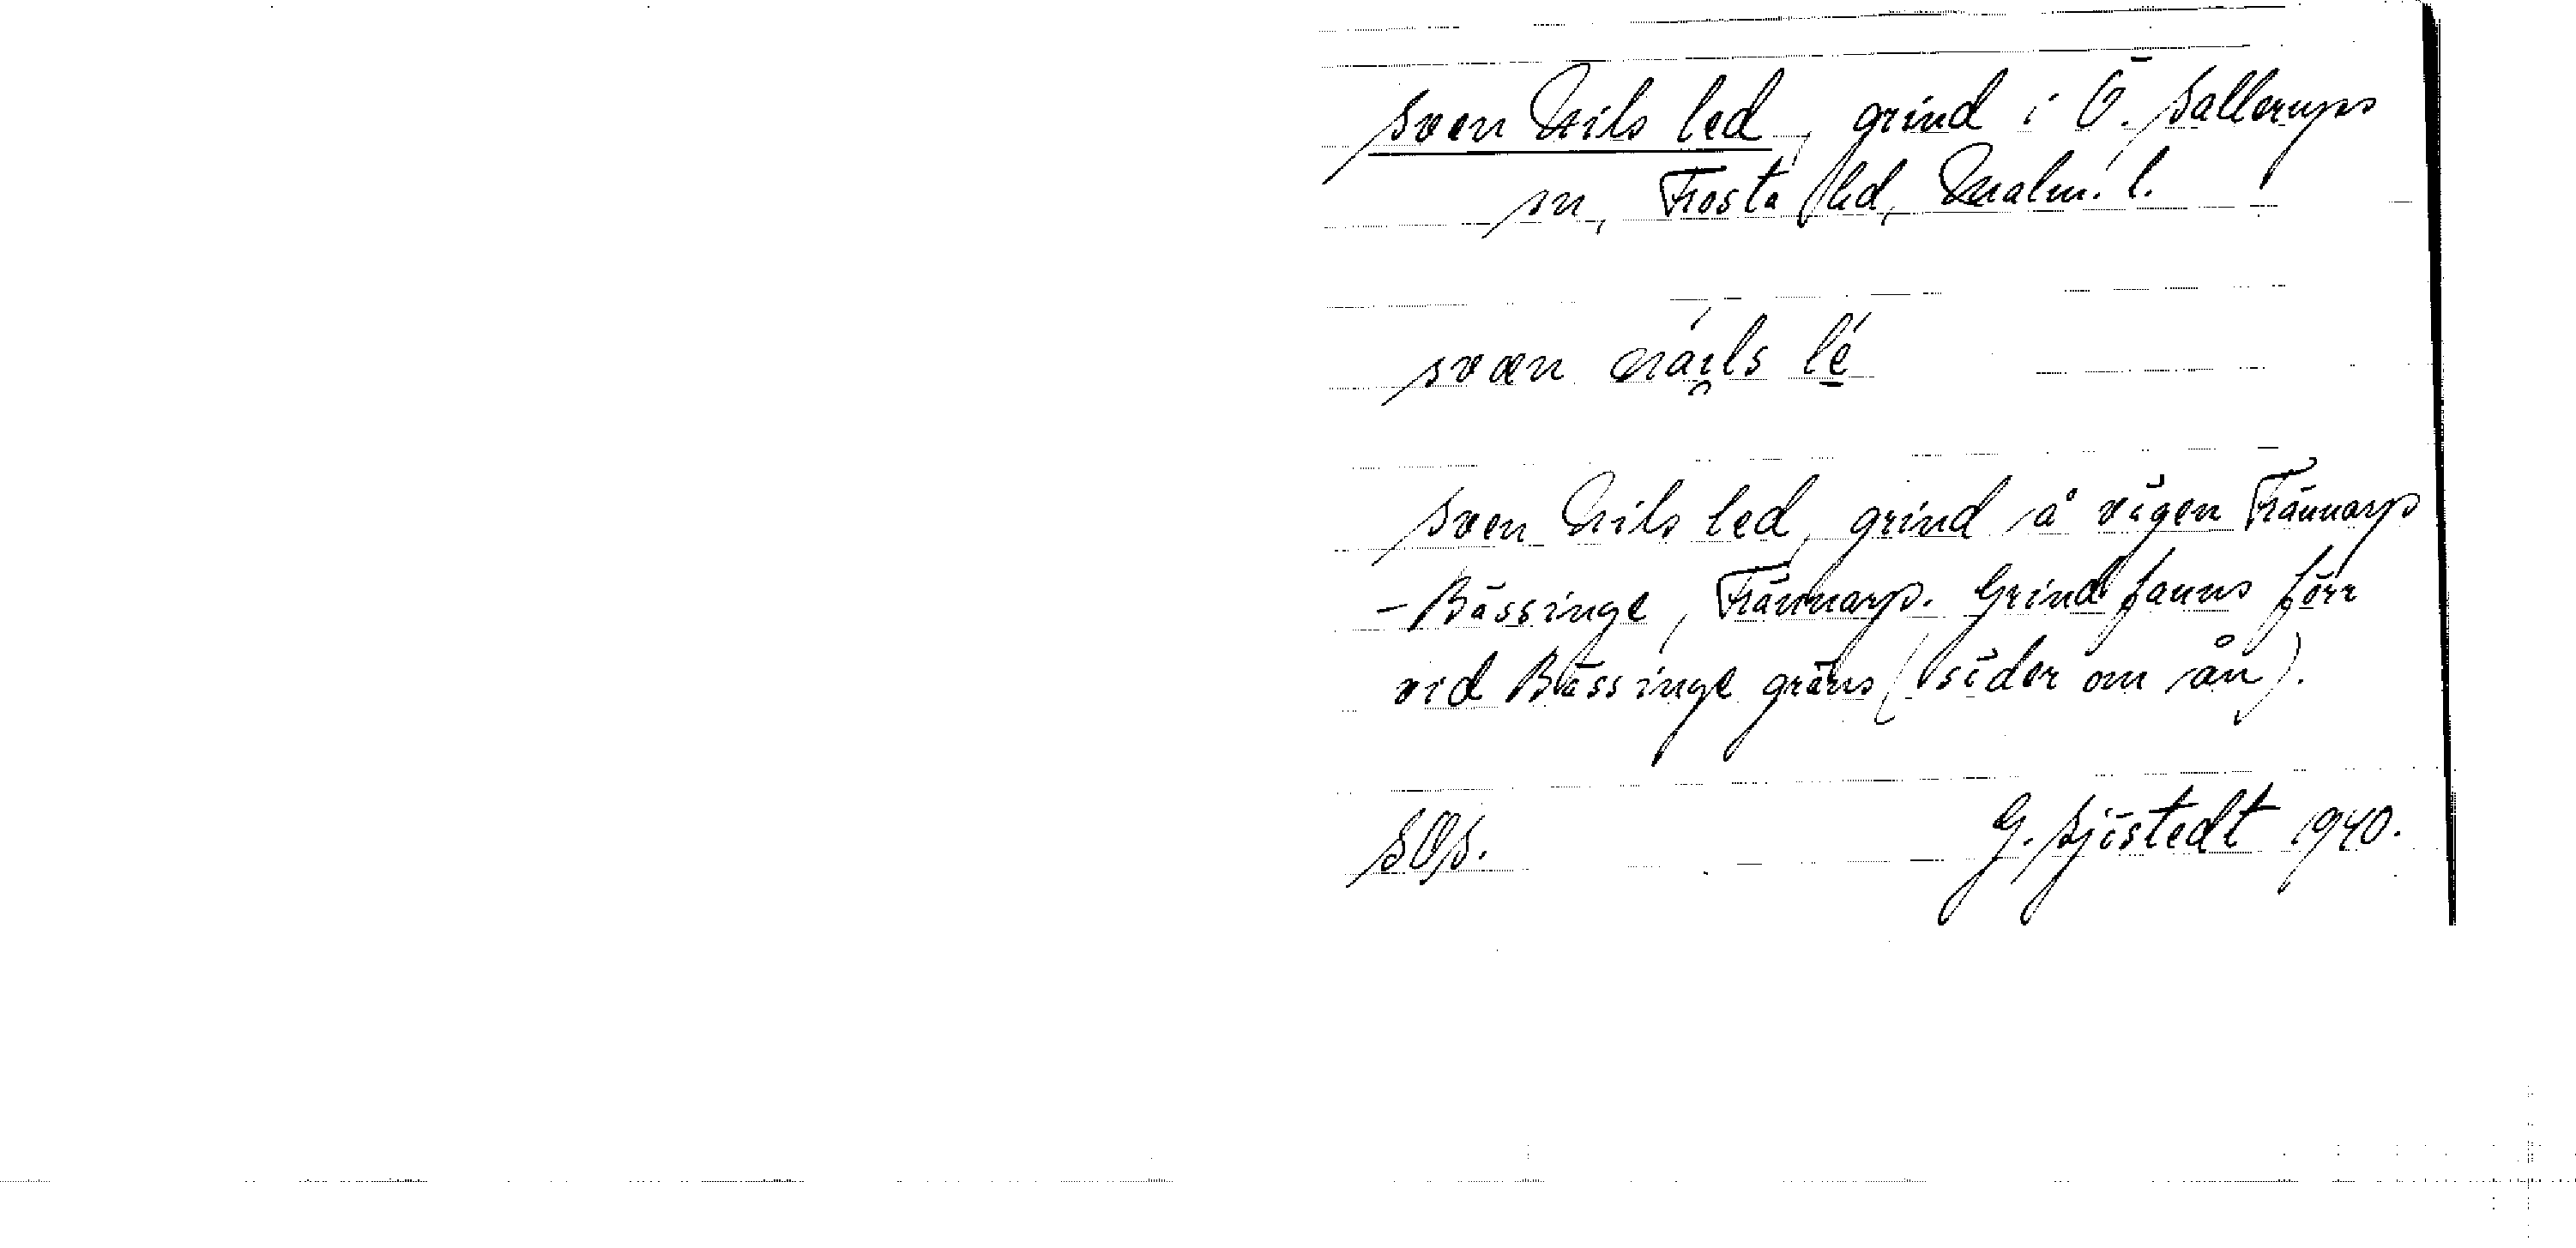 Sven Nils led, grind i Ö. Sallerups
sn, Frosta hd, Malm. l.
svæn nái̯ls lé
Sven Nils led, grind å vägen Frännarp
– Bässinge, Frännarp. Grind fanns förr
vid Bässinge gräns (söder om ån).
SOS. G. Sjöstedt 1940.